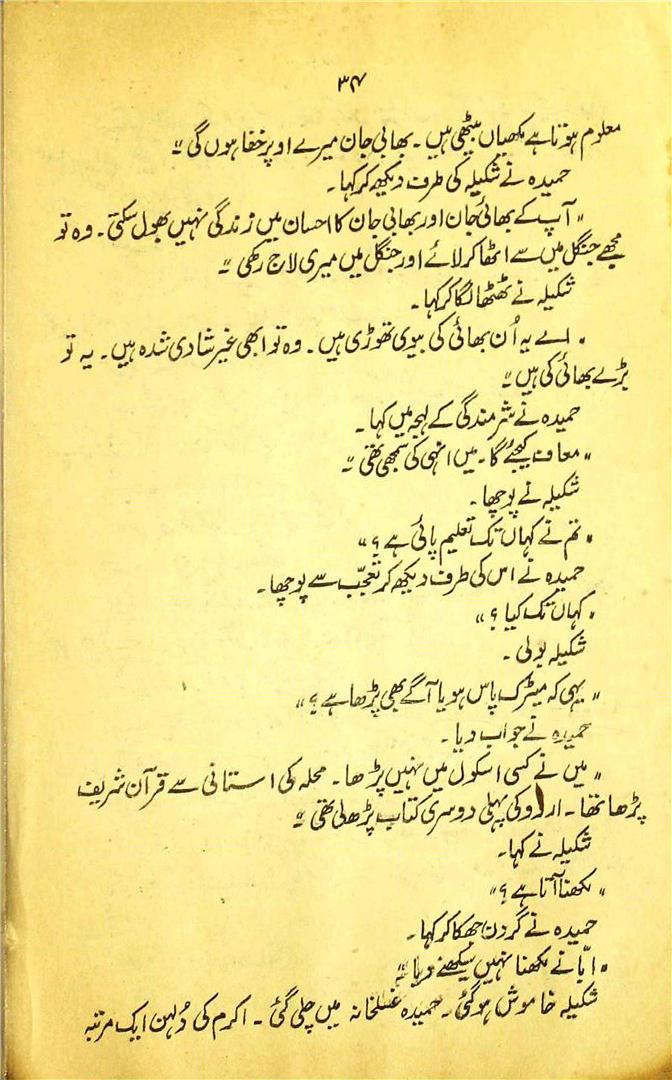 ۳۴
معلوم ہوتا ہے مکھیاں بیٹھی ہیں۔ بھابی جان میرے اوپر خفا ہوں گی"
حمیدہ نے شکیلہ کی طرف دیکھ کر کہا۔
"آپ کے بھائی جان اور بھابی جان کا احسان میں زندگی نہیں بھول سکتی۔ وہ تو
مجھے جنگل میں سے اٹھا کر لائے اور جنگل میں میری لاج رکھی"
شکیلہ نے ٹھٹھا لگا کر کہا۔
"اے یہ اُن بھائی کی بیوی تھوڑی ہیں۔ وہ تو ابھی غیر شادی شدہ ہیں۔ یہ تو
بڑے بھائی کی ہیں"
حمیدہ نے شرمندگی کے لہجہ میں کہا۔
"معاف کیجئے گا۔ میں انہی کی سمجھی تھی"
شکیلہ نے پوچھا۔
"تم نے کہاں تک تعلیم پائی ہے؟"
حمیدہ نے اس کی طرف دیکھ کر تعجّب سے پوچھا۔
"کہاں تک کیا؟"
شکیلہ بولی۔
"یہی کہ میٹرک پاس ہو یا آگے بھی پڑھا ہے؟"
حمیدہ نے جواب دیا۔
"میں نے کسی اسکول میں نہیں پڑھا۔ محلہ کی استانی سے قرآن شریف
پڑھا تھا۔ اردو کی پہلی دوسری کتاب پڑھ لی تھی"
شکیلہ نے کہا۔
"لکھنا آتا ہے؟"
حمیدہ نے گردن جھکا کر کہا۔
"ابّا نے لکھنا نہیں سیکھنے دیا"
شکیلہ خاموش ہوگئی۔ حمیدہ غسلخانہ میں چلی گئی۔ اکرم کی دُلہن ایک مرتبہ